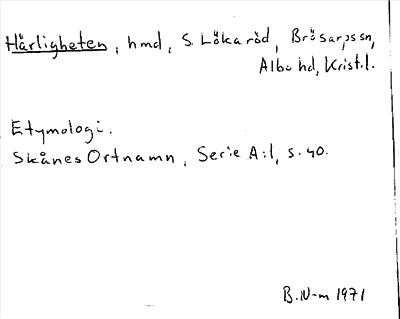 Härligheten, hmd, S. Lökaröd, Brösarps sn,
Albo hd, Krist.l.
Etymologi.
Skånes Ortnamn, Serie A:1, s. 40.
B.N-m 1971